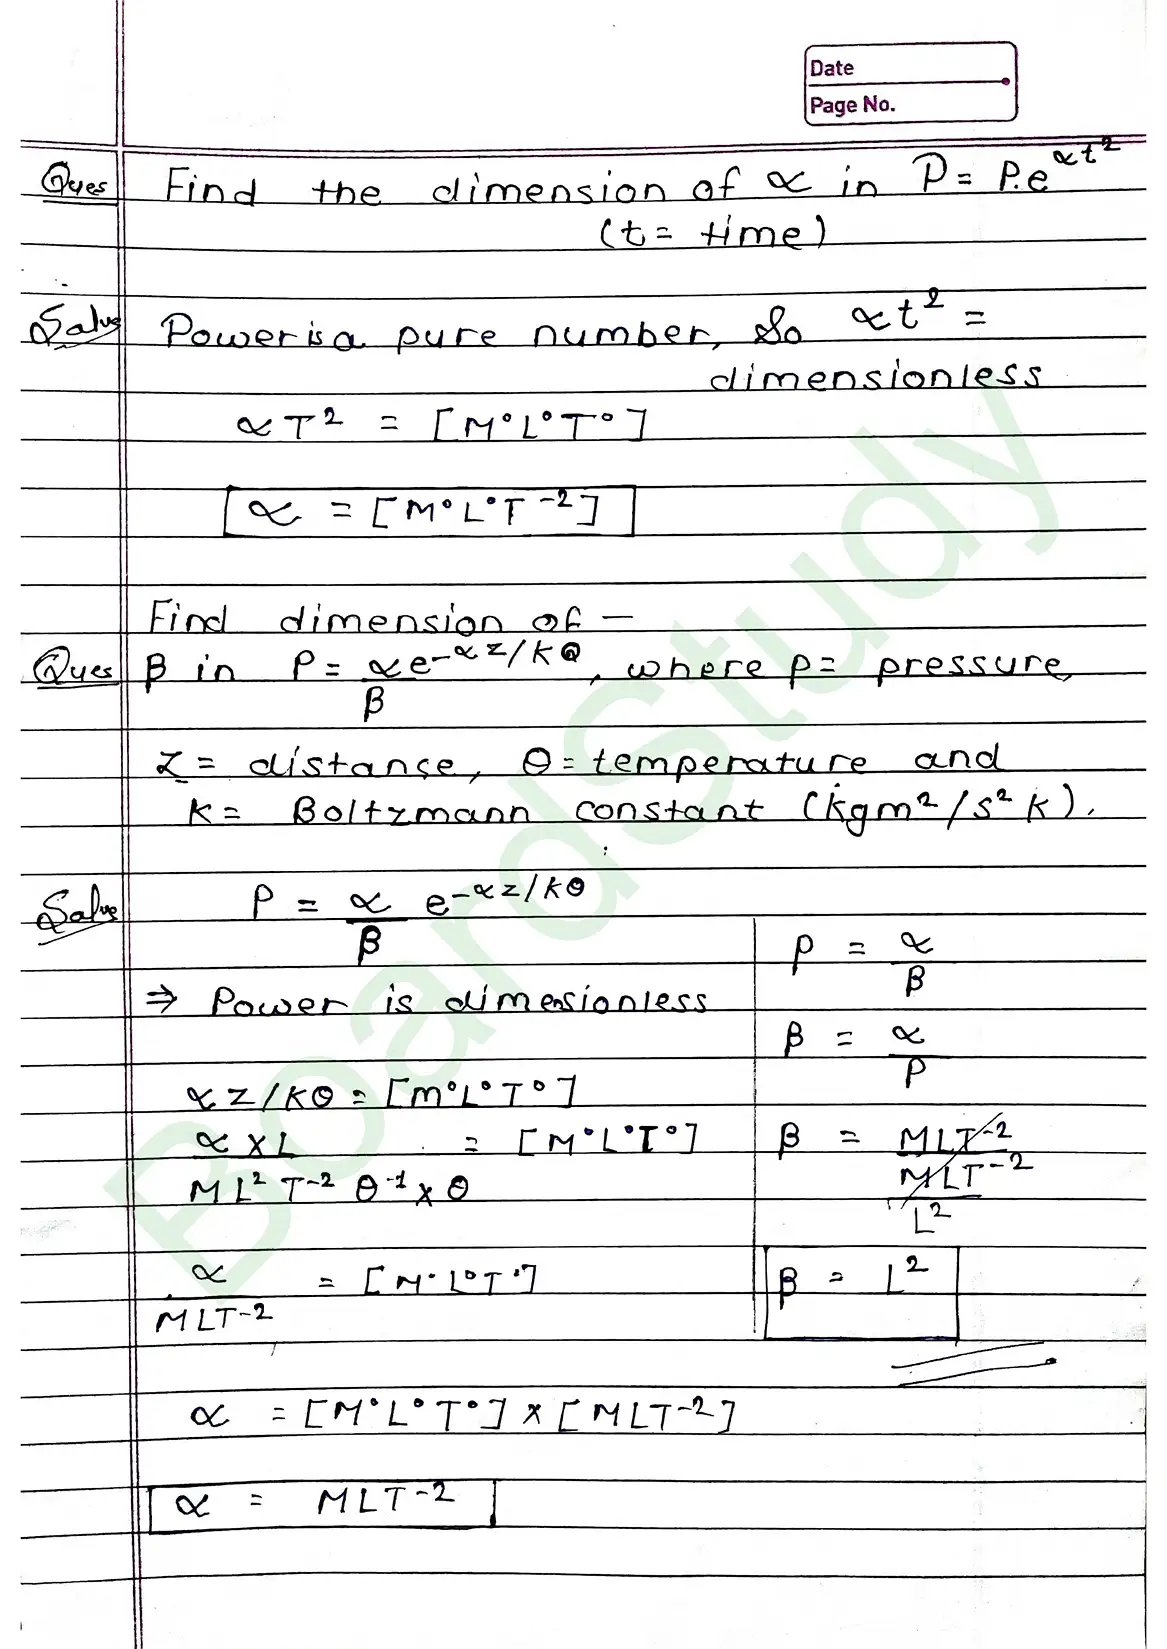 Date
Page No.
Ques Find the dimension of ∝ in P = P.e^∝t²
(t = time)
Salve Power is a pure number, So ∝t² =
dimensionless
∝T² = [M°L°T°]
∝ = [M°L°T⁻²]
Find dimension of —
Ques β in P = ∝/β e^-∝z/kθ, where p = pressure,
Z = distance, θ = temperature and
K = Boltzmann constant (kgm²/s² k).
Salve P = ∝/β e^-∝z/kθ
⇒ Power is dimesionless
∝z/kθ = [M°L°T°]
∝ x L / ML²T⁻²θ⁻¹ x θ = [M°L°T°]
∝/MLT⁻² = [M°L°T°]
∝ = [M°L°T°] x [MLT⁻²]
∝ = MLT⁻²
P = ∝/β
β = ∝/P
β = MLT⁻² / MLT⁻²/L²
β = L²
BoardStudy